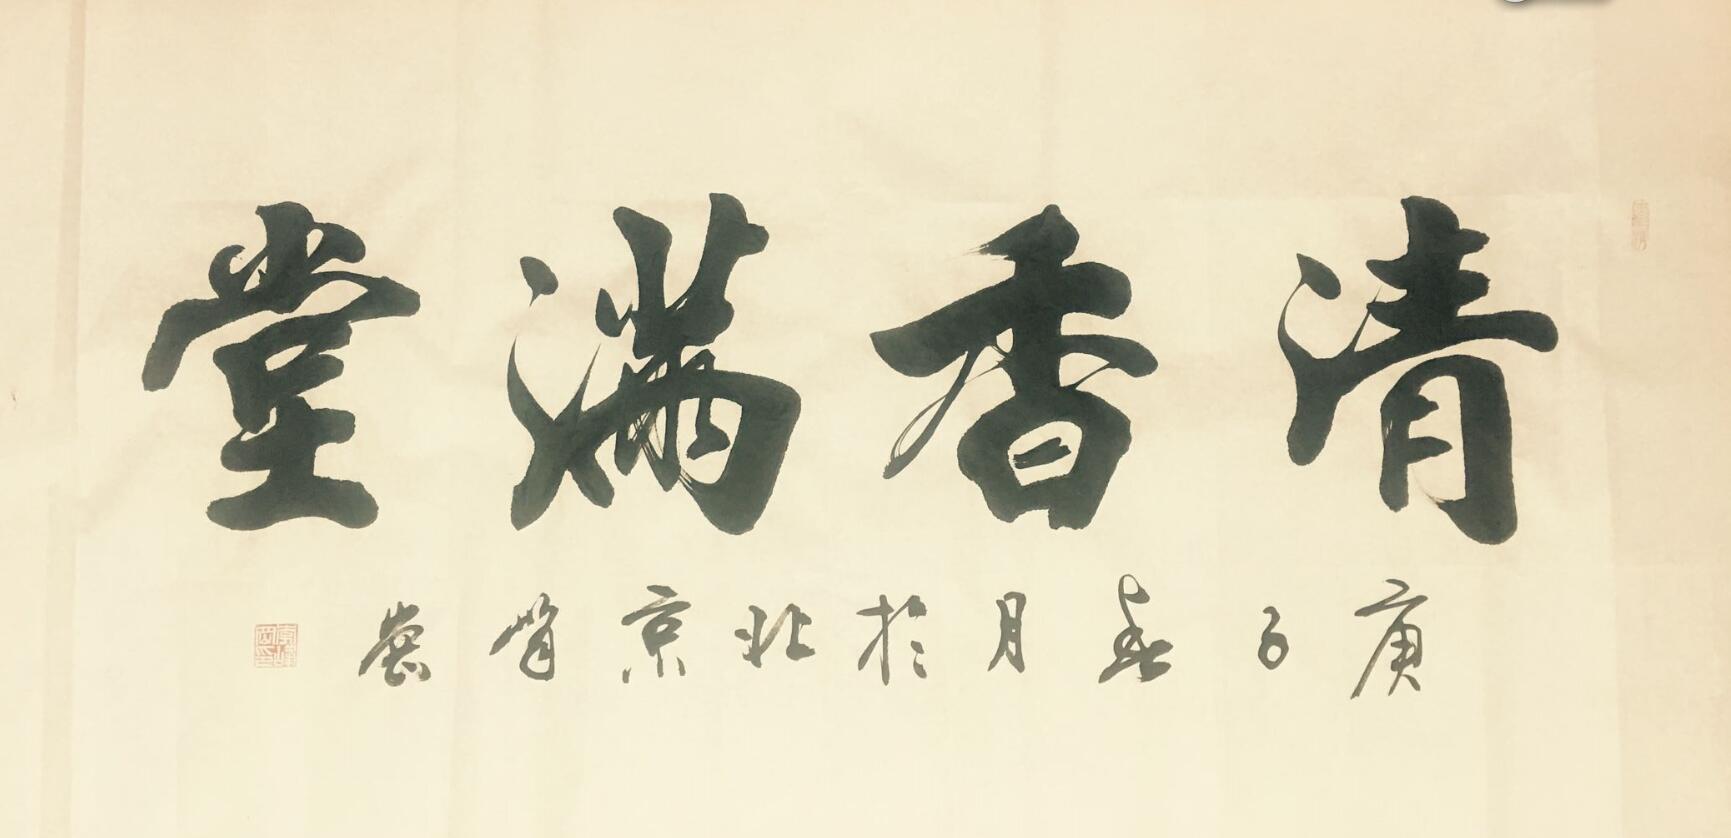 清香满堂
庚子春月於北京